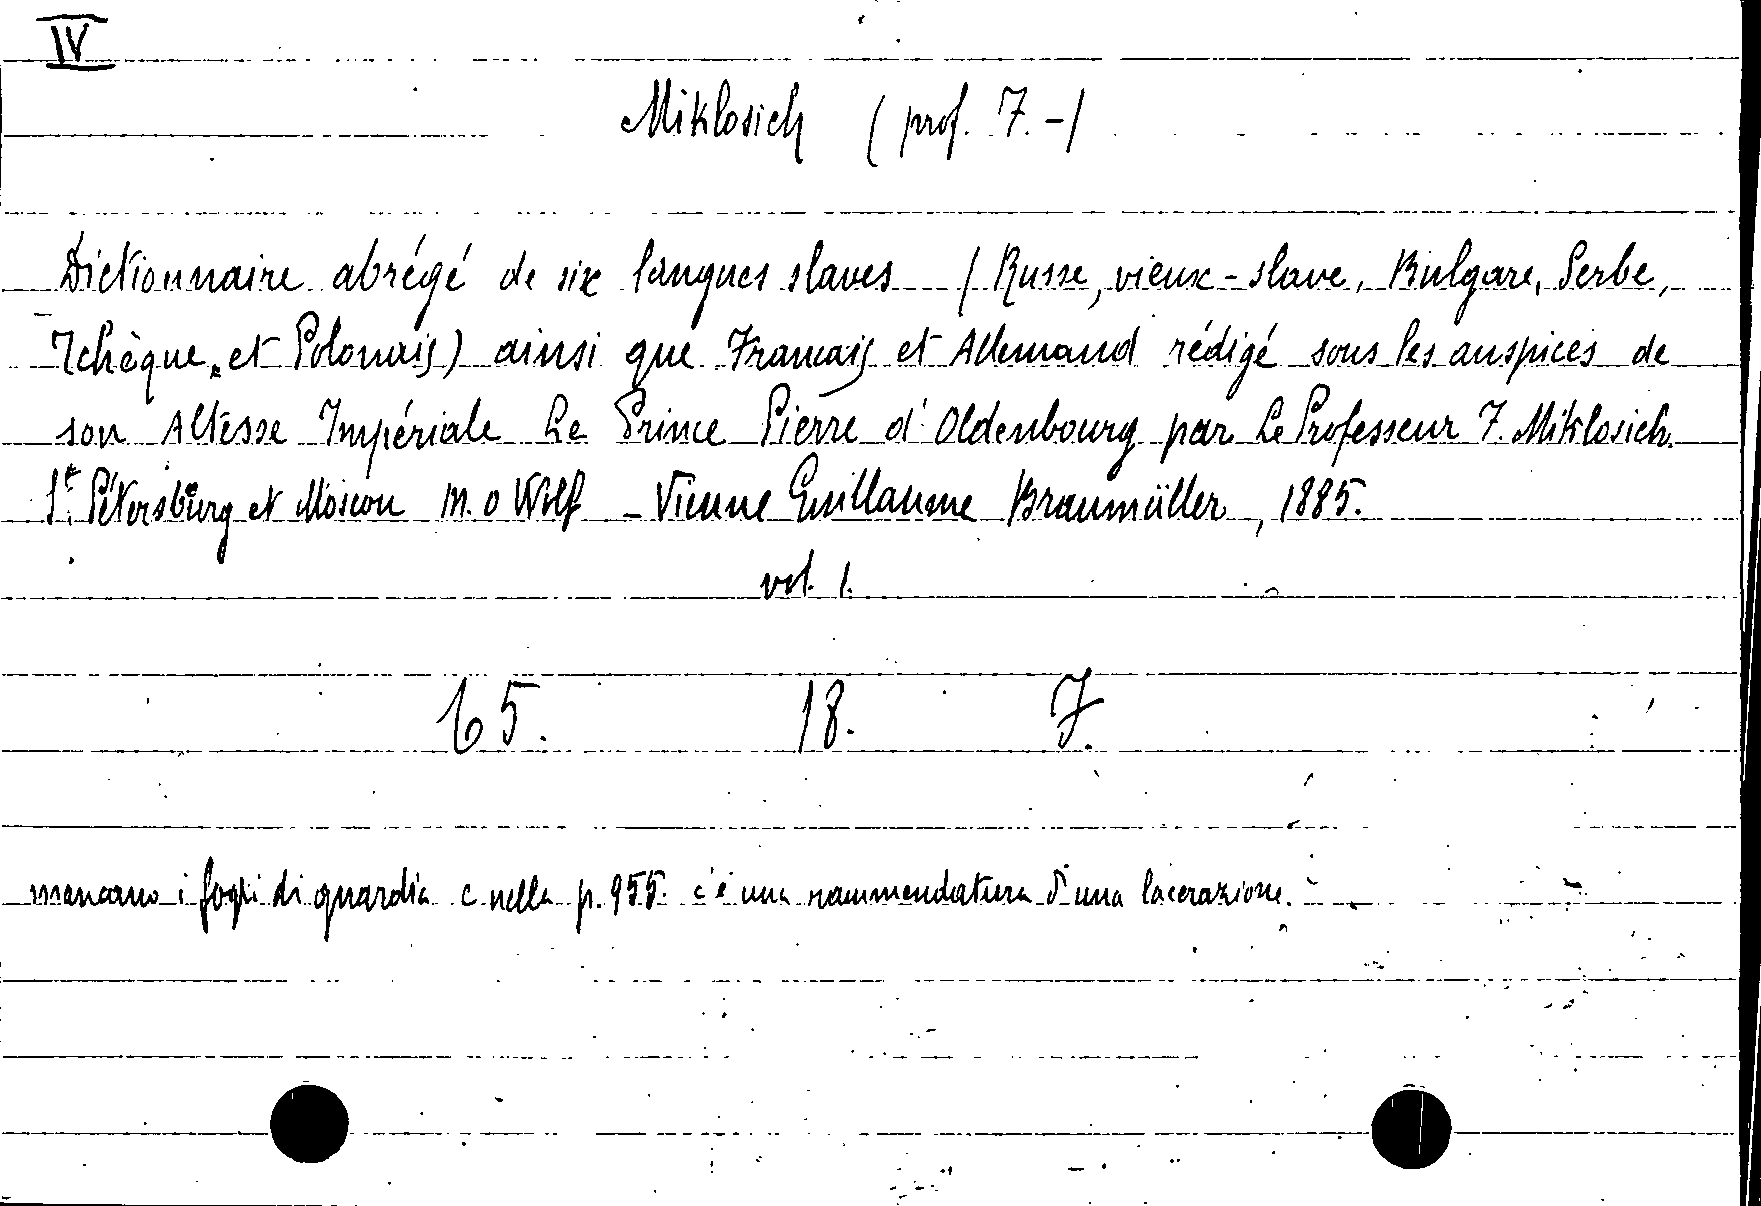 IV
Miklosich (prof. F. -)
Dictionnaire abrégé de six langues slaves (Russe, vieux-slave, Bulgare, Serbe,
Tchèque, et Polonais) ainsi que Francais et Allemand rédigé sous les auspices de
son Altesse Impériale Le Prince Pierre d'Oldenbourg par Le Professeur F. Miklosich.
St. Pétersburg et Moscou M. O Wolf - Vienne Guillaume Braumüller, 1885.
vol. 1.
65. 18. F.
mancano i fogli di guardia e nella p. 955. c'è una rammendatura d'una lacerazione.